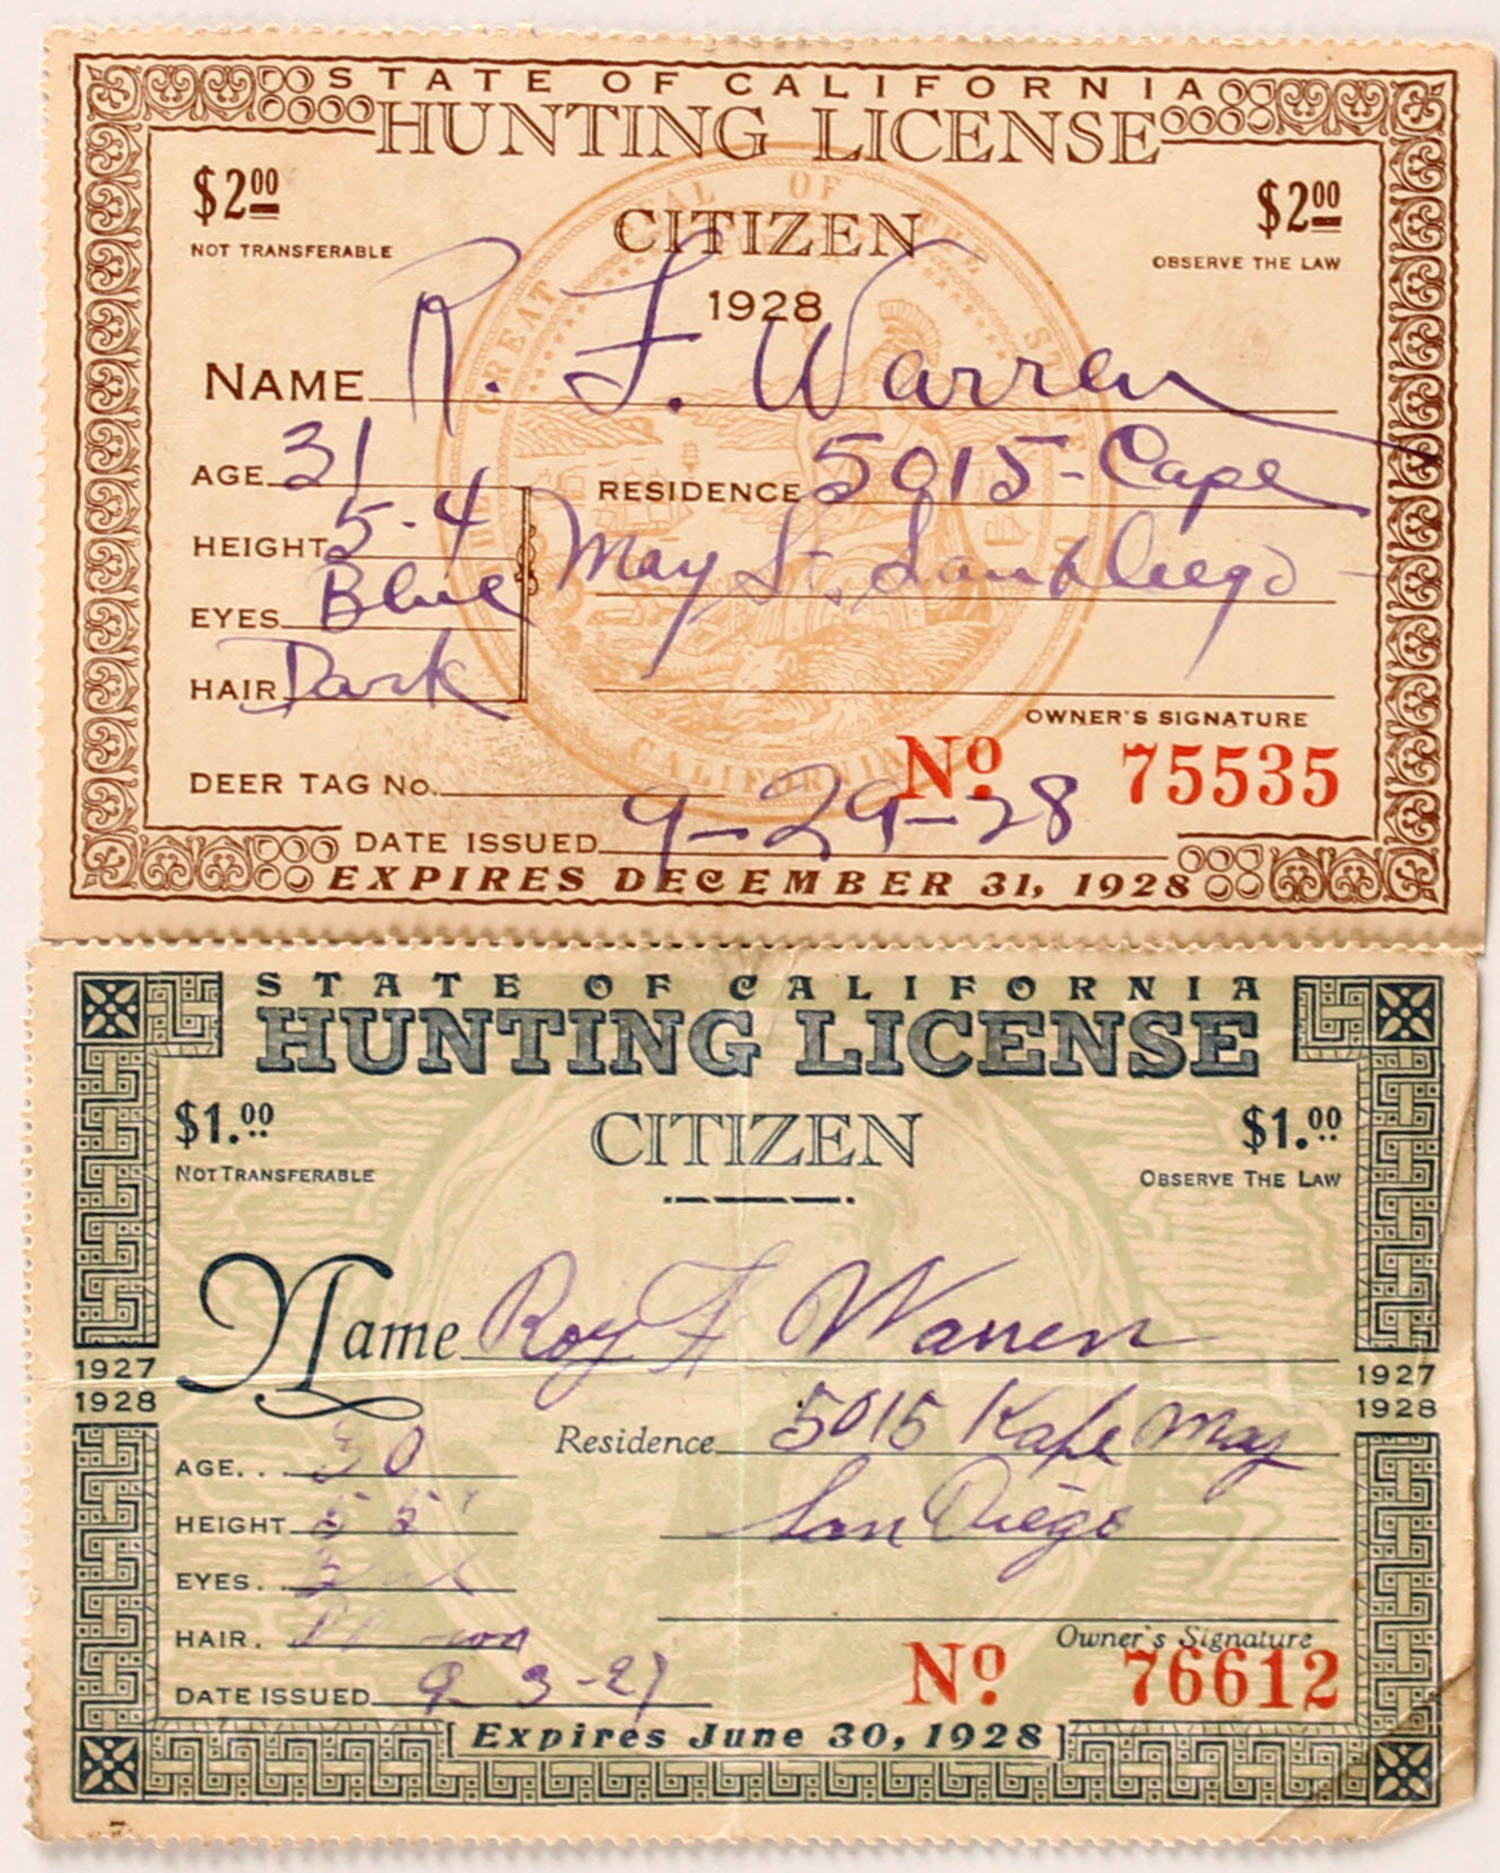 STATE OF CALIFORNIA
HUNTING LICENSE
$2.00 $2.00
NOT TRANSFERABLE CITIZEN OBSERVE THE LAW
1928
NAME R. F. Warren
AGE 31 RESIDENCE 5015 - Cape
HEIGHT 5-4 May St. San Diego
EYES Blue
HAIR Dark
OWNER'S SIGNATURE
DEER TAG No. No 75535
DATE ISSUED 9-29-28
EXPIRES DECEMBER 31, 1928
THE GREAT SEAL OF THE STATE
CALIFORNIA
STATE OF CALIFORNIA
HUNTING LICENSE
$1.00 CITIZEN $1.00
NOT TRANSFERABLE OBSERVE THE LAW
Name Roy F Warren
1927 1927
1928 1928
AGE... 30 Residence 5015 Kape May
HEIGHT 5 5" San Diego
EYES.
HAIR.
Owner's Signature
DATE ISSUED 9 3-27 No. 76612
[Expires June 30, 1928]